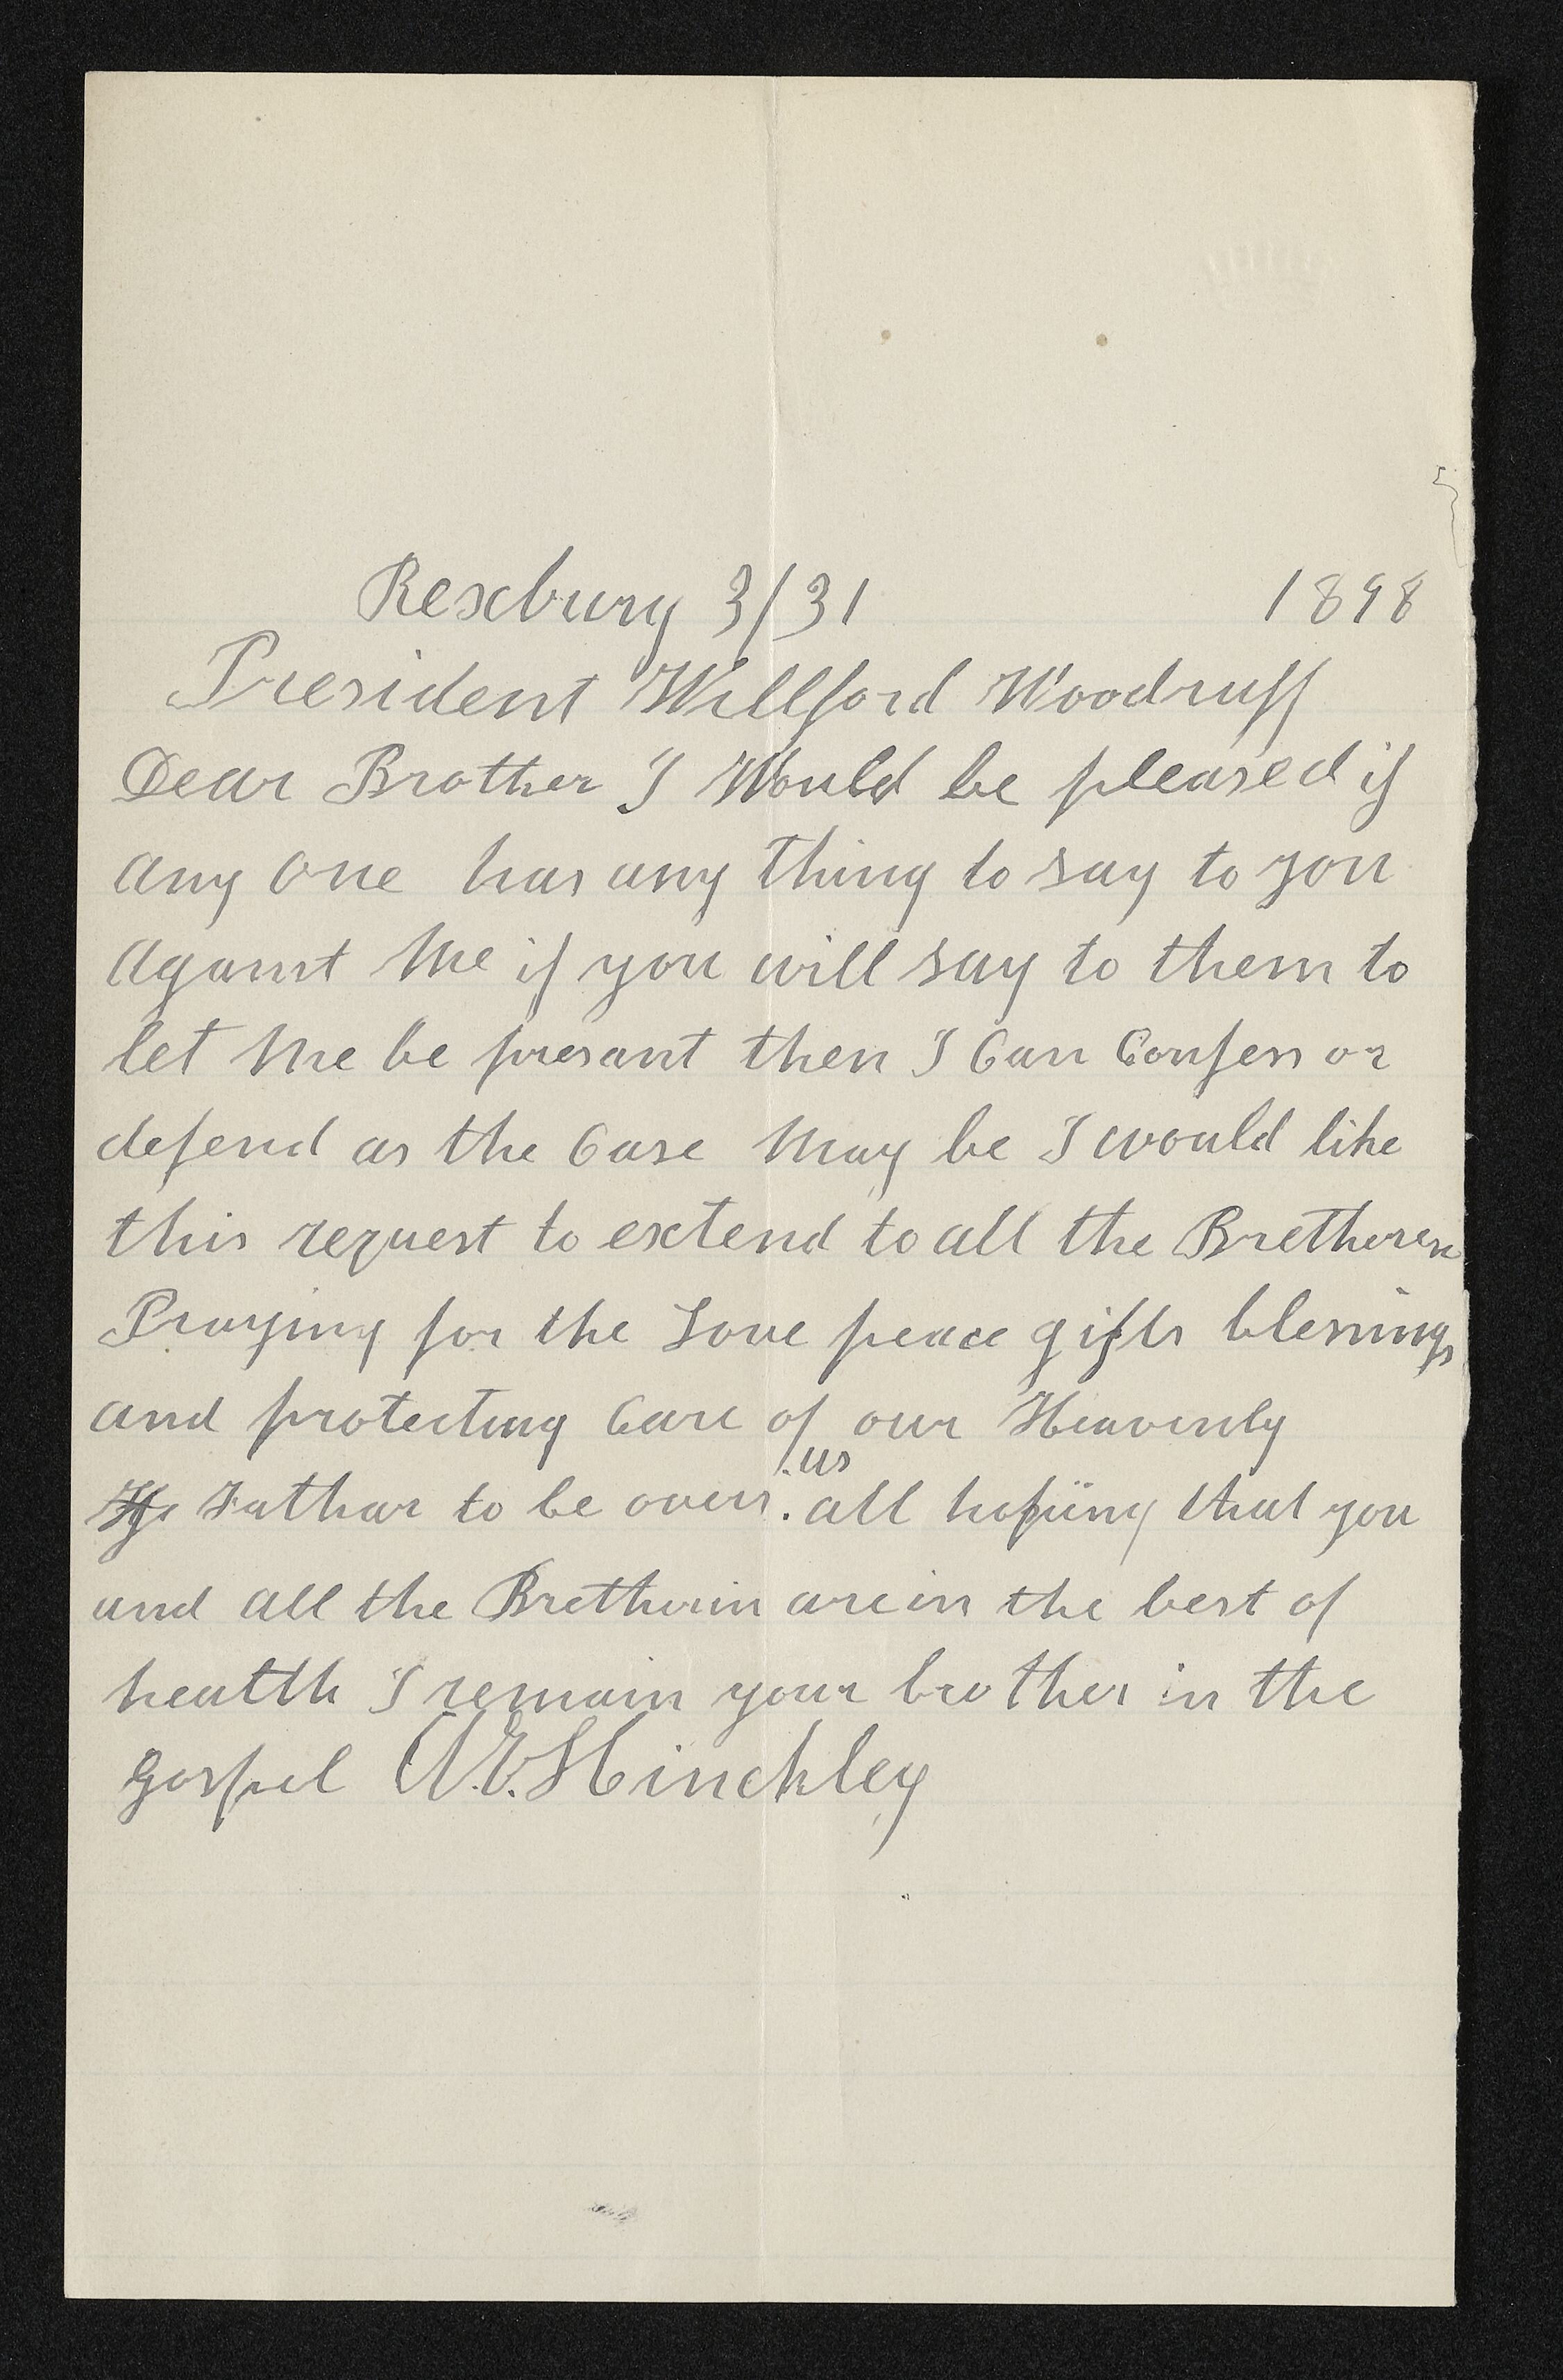 Rexburg 3/31 1898
President Willford Woodruff
Dear Brother I Would be pleased if
any one has any thing to say to you
Against Me if you will say to them to
let Me be presant then I Can Confess or
defend as the Case May be I would like
this request to extend to all the Bretheren
Praying for the Love peace gifts blessings
and protecting Care of our Heavenly
Father to be over us all hopiing that you
and all the Bretherin are in the best of
health I remain your brother in the
gospel A. E. Hinckley